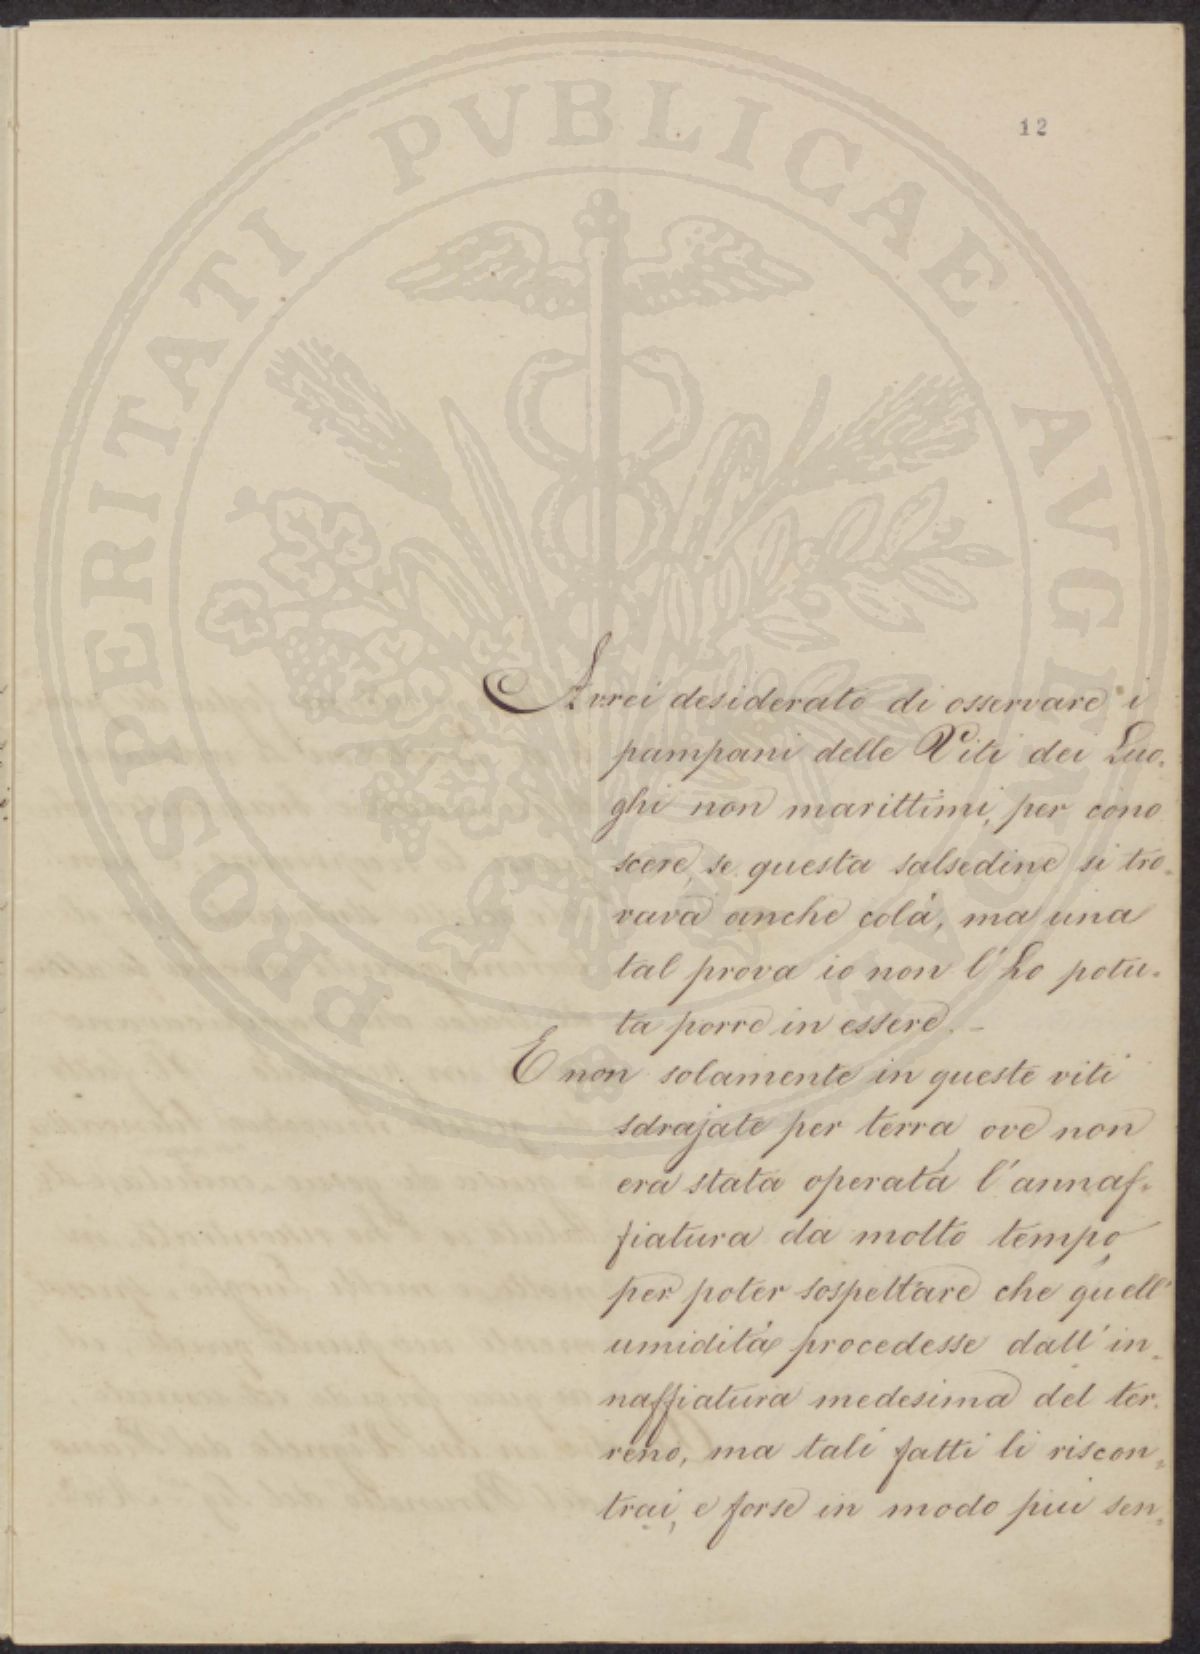 12
PROSPERITATI PVBLICAE AVGENDAE
Avrei desiderato di osservare i
pampani delle Viti dei Luo-
ghi non marittimi, per cono
scere, se questa salsedine si tro-
vava anche colà, ma una
tal prova io non l'ho potu-
ta porre in essere. -
E non solamente in queste viti
sdrajate per terra, ove non
era stata operata l'annaf-
fiatura da molto tempo,
per poter sospettare che quell'
umidità procedesse dall'in-
naffiatura medesima del ter-
reno, ma tali fatti li riscon-
trai, e forse in modo più sen-